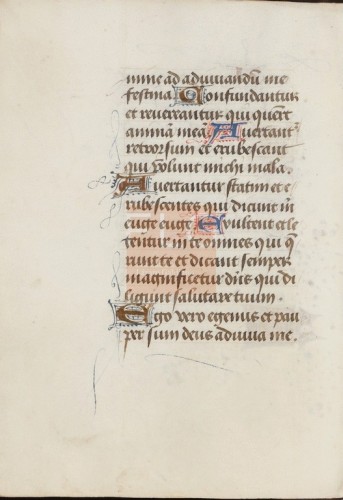 mine ad adiuuandū me
festina Confundantur
et reuereantur qui querūt
animā meā Auertantˀ
retrorsum et erubescant
qui volunt michi mala.
Auertantur statim et e
rubescentes qui dicunt m̄
euge euge Exultent et le
tentur in te omnes qui q̄
runt te et dicant semper
magnificetur dn̄s qui di
ligunt salutare tuum.
Ego vero egenus et pau
per sum deus adiuua me.